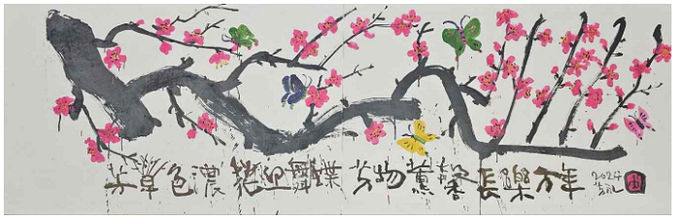 芳草色濃 花迎舞蝶 芳物薰馨 長樂万年 2024